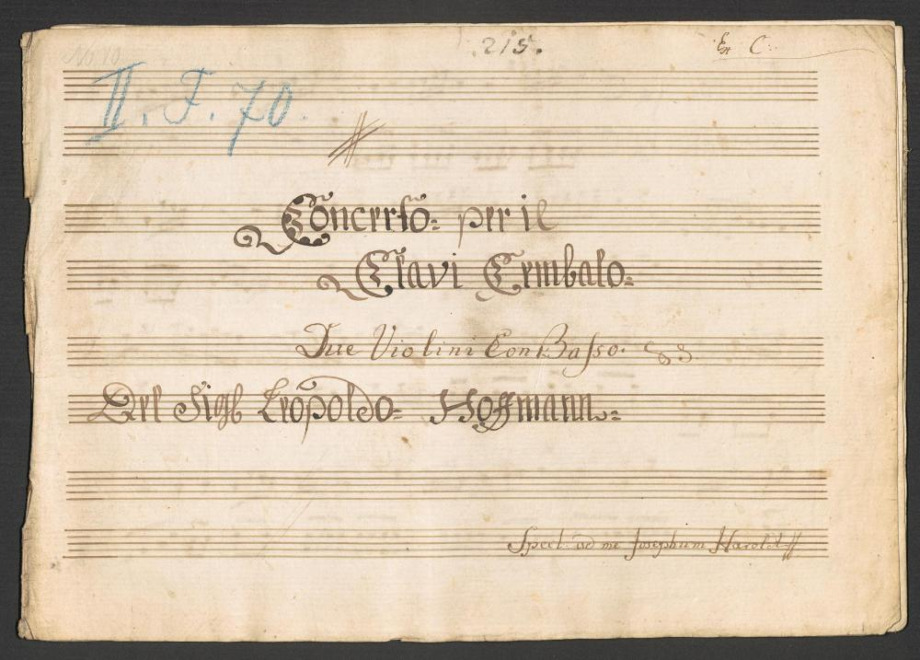 215.
Ex C:
II. F. 70.
Concerto= per il
Clavi Cembalo=
Due Violini Con Basso.
Del Sigl Leopoldo= Hoffmann=
Spect. ad me Josephum